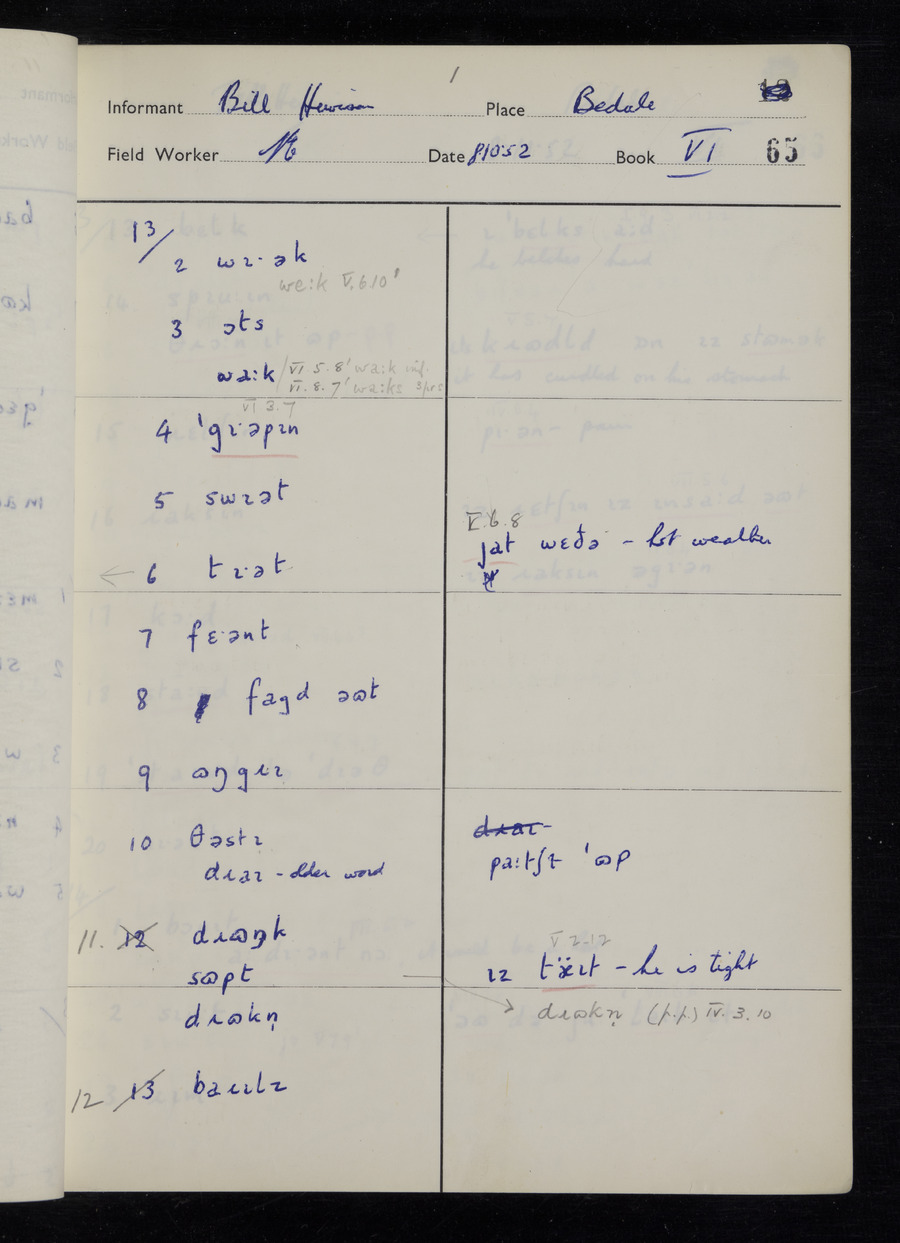 1
Informant Bill Hewison Place Bedale
Field Worker Date 8.10.52 Book VI 65
13/
2 wɪ·ək
we:k V.6.10'
3 əts
wa:k / VI 5.8' wa:k inf.
VI. 8. 7' wa:ks 3prs
VI 3.7
4 'gɹɪ·əpɪn
5 swɪət
V.6.8
jat wɛðə - hot weather
← 6 tɪ·ət
7 fɛ·ənt
8 fagd əʊt
9 ʊŋgɹɪ
10 θəstɪ
dɹaɪ - older word
dɹaɪ-
pa:tʃt 'ʊp
11. 12 dɹʊŋk
sʊpt
V 2-12
ɪz tæɪt - he is tight
dɹʊkn̩
dɹʊkn̩ (p.p.) IV. 3. 10
12 13 baɪɪlɪ